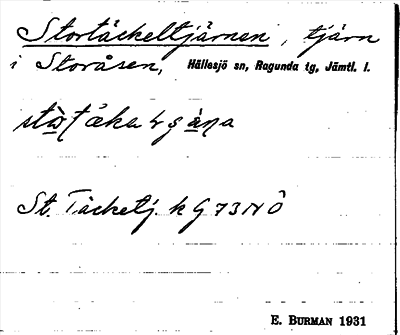 Stortäckeltjärnen, tjärn
i Storåsen, Hällesjö sn, Ragunda tg, Jämtl. l.
St. Täckeltj. k G 73 N Ö
E. BURMAN 1931